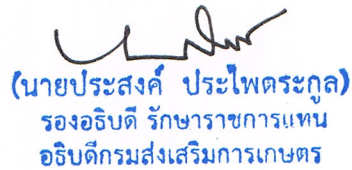 (นายประสงค์ ประไพตระกูล)
รองอธิบดี รักษาราชการแทน
อธิบดีกรมส่งเสริมการเกษตร